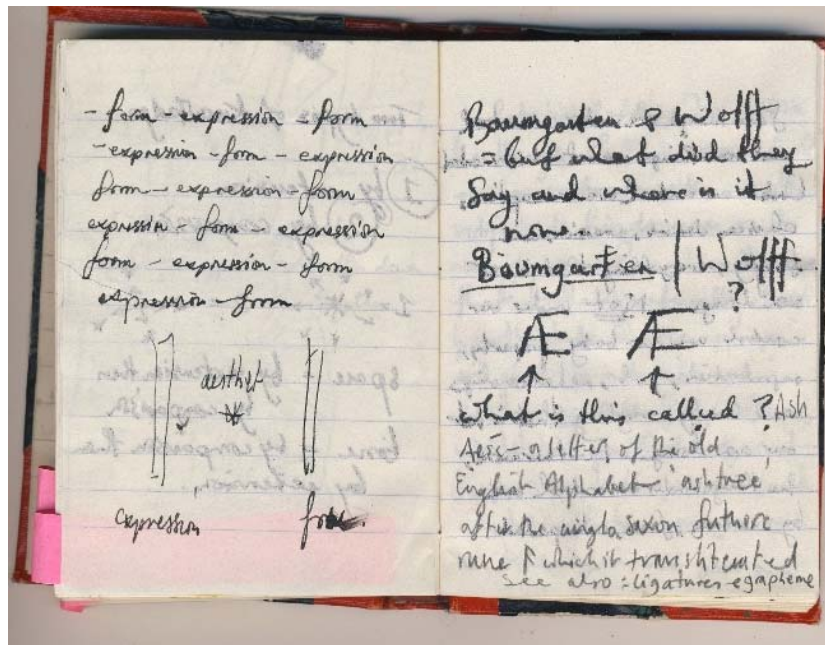 - form - expression - form
- expression - form - expression
form - expression - form
expression - form - expression
form - expression - form
expression - form
aesthet
expression
Baumgarten & Wolff
= but what did they
say and where is it
now.
Baumgarten | Wolff.
?
Æ Æ
↑ ↑
what is this called? Ash
Aesc - a letter of the old
English Alphabet 'ashtree'
after the anglo saxon futhorc
rune ᚨ which it transliterated
see also: ligatures egrapheme